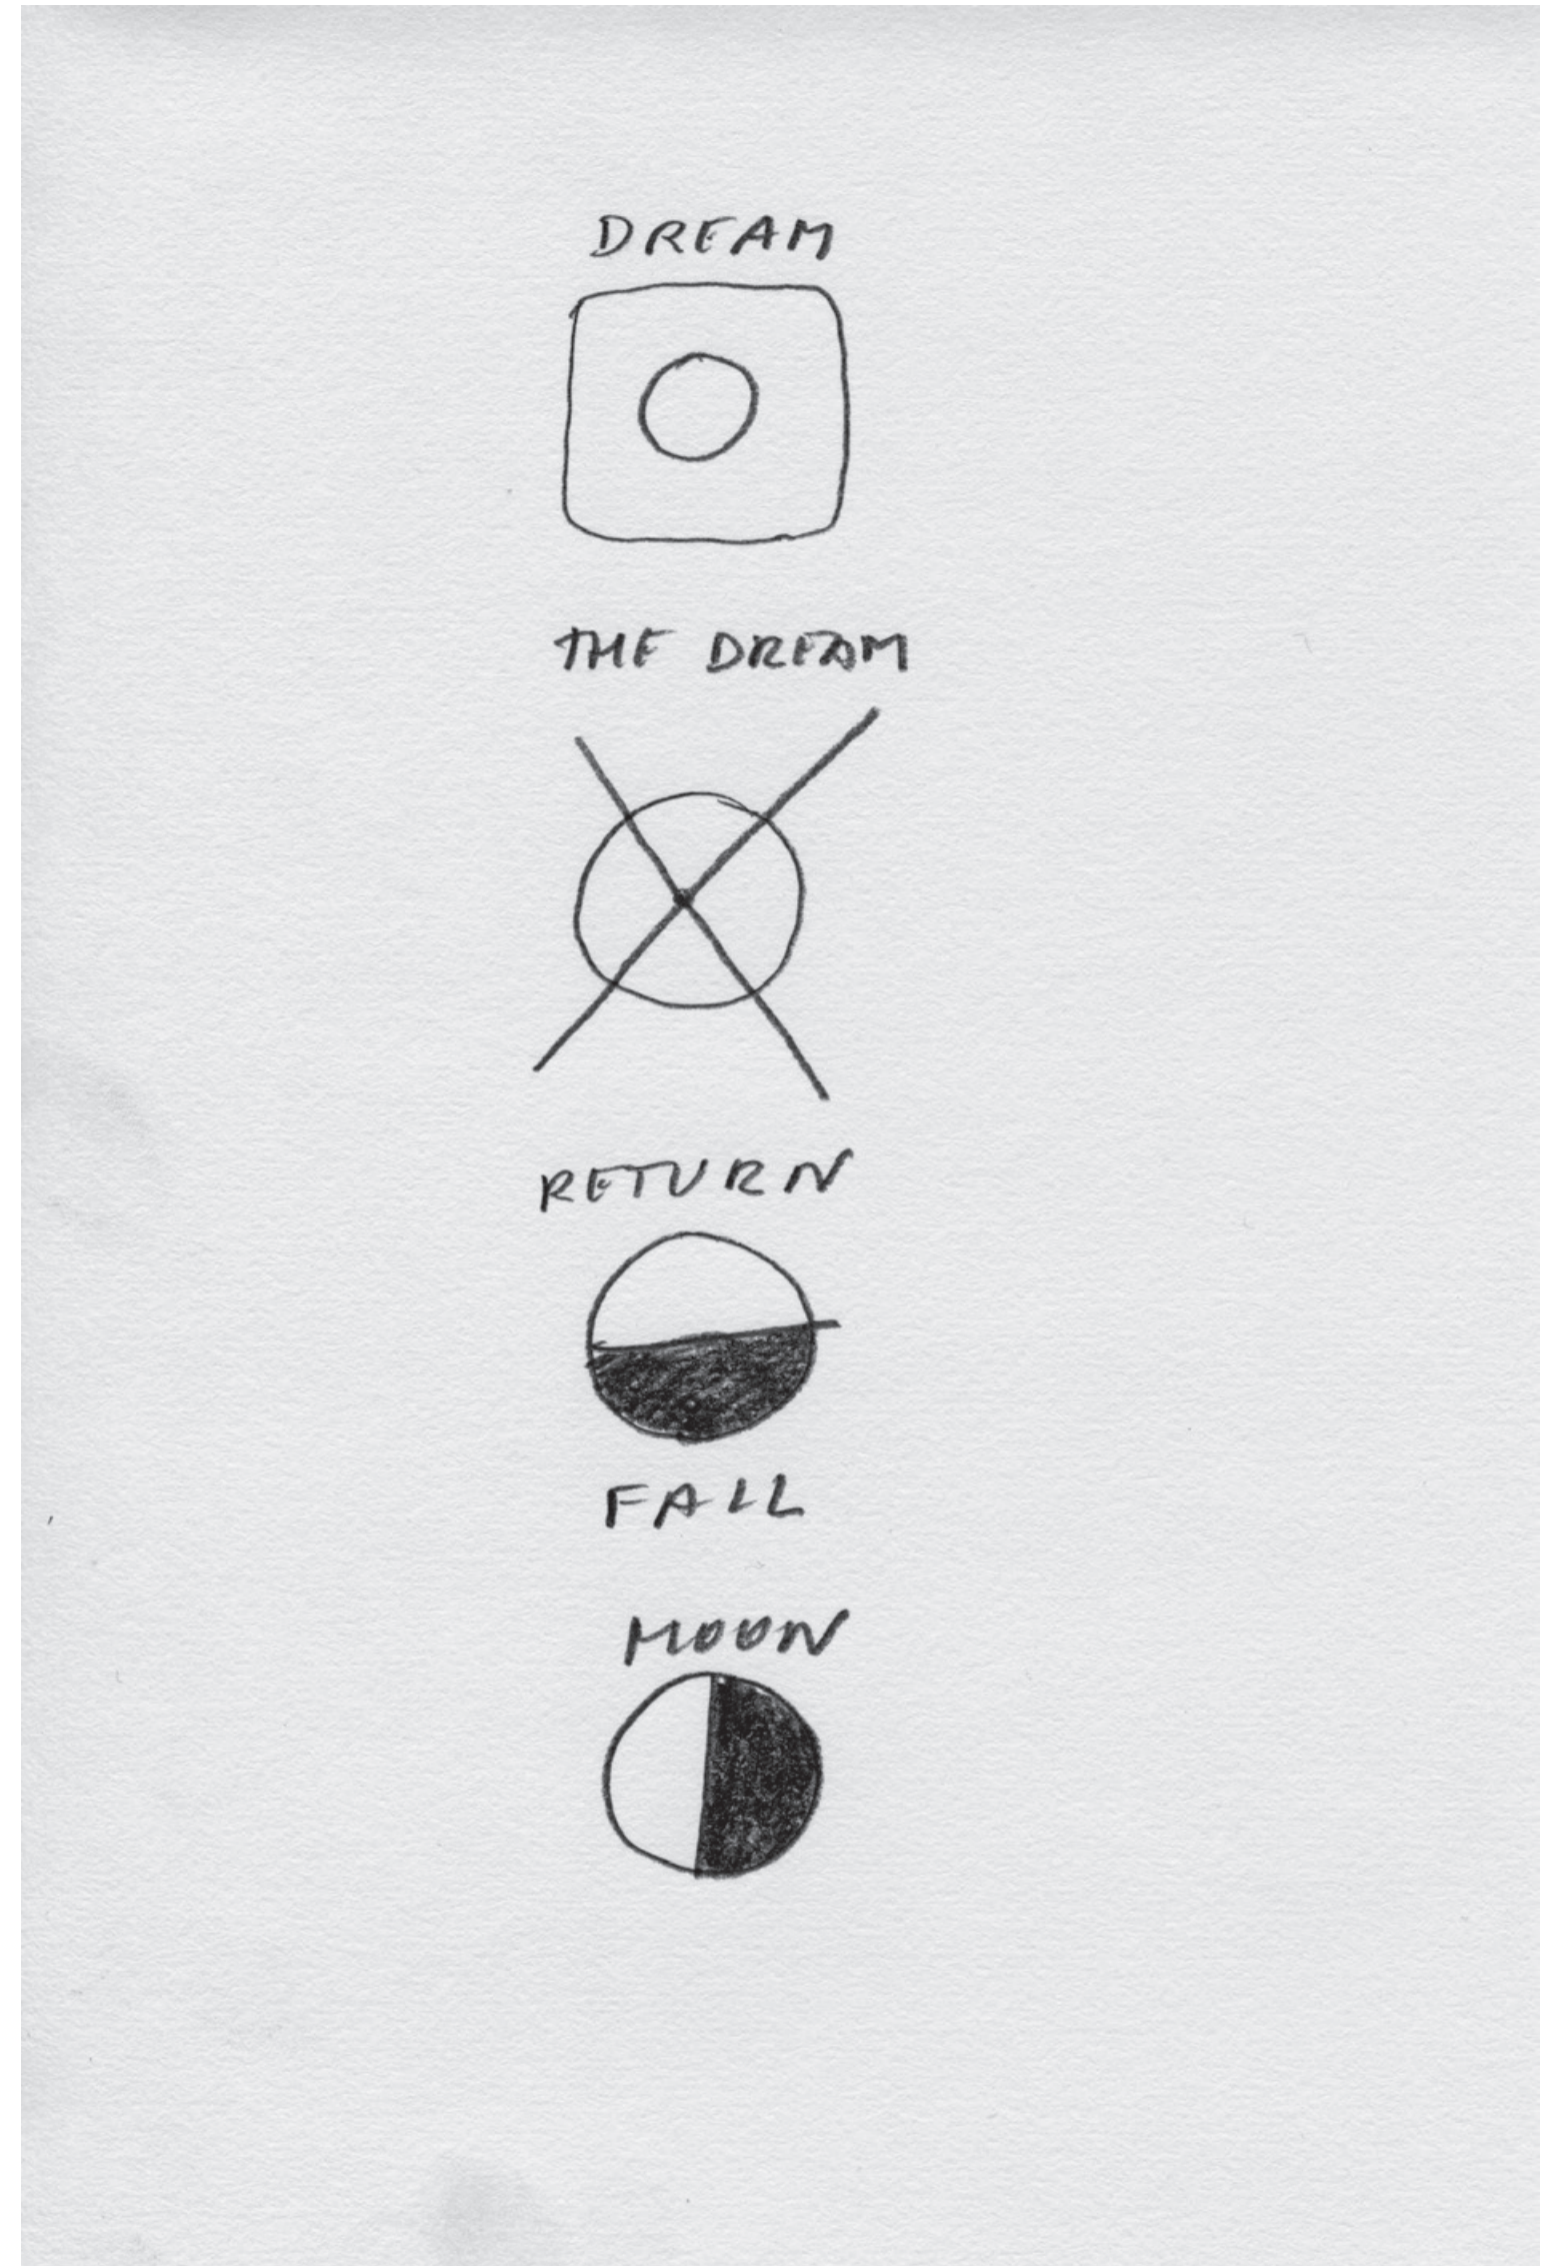 DREAM
THE DREAM
RETURN
FALL
MOON